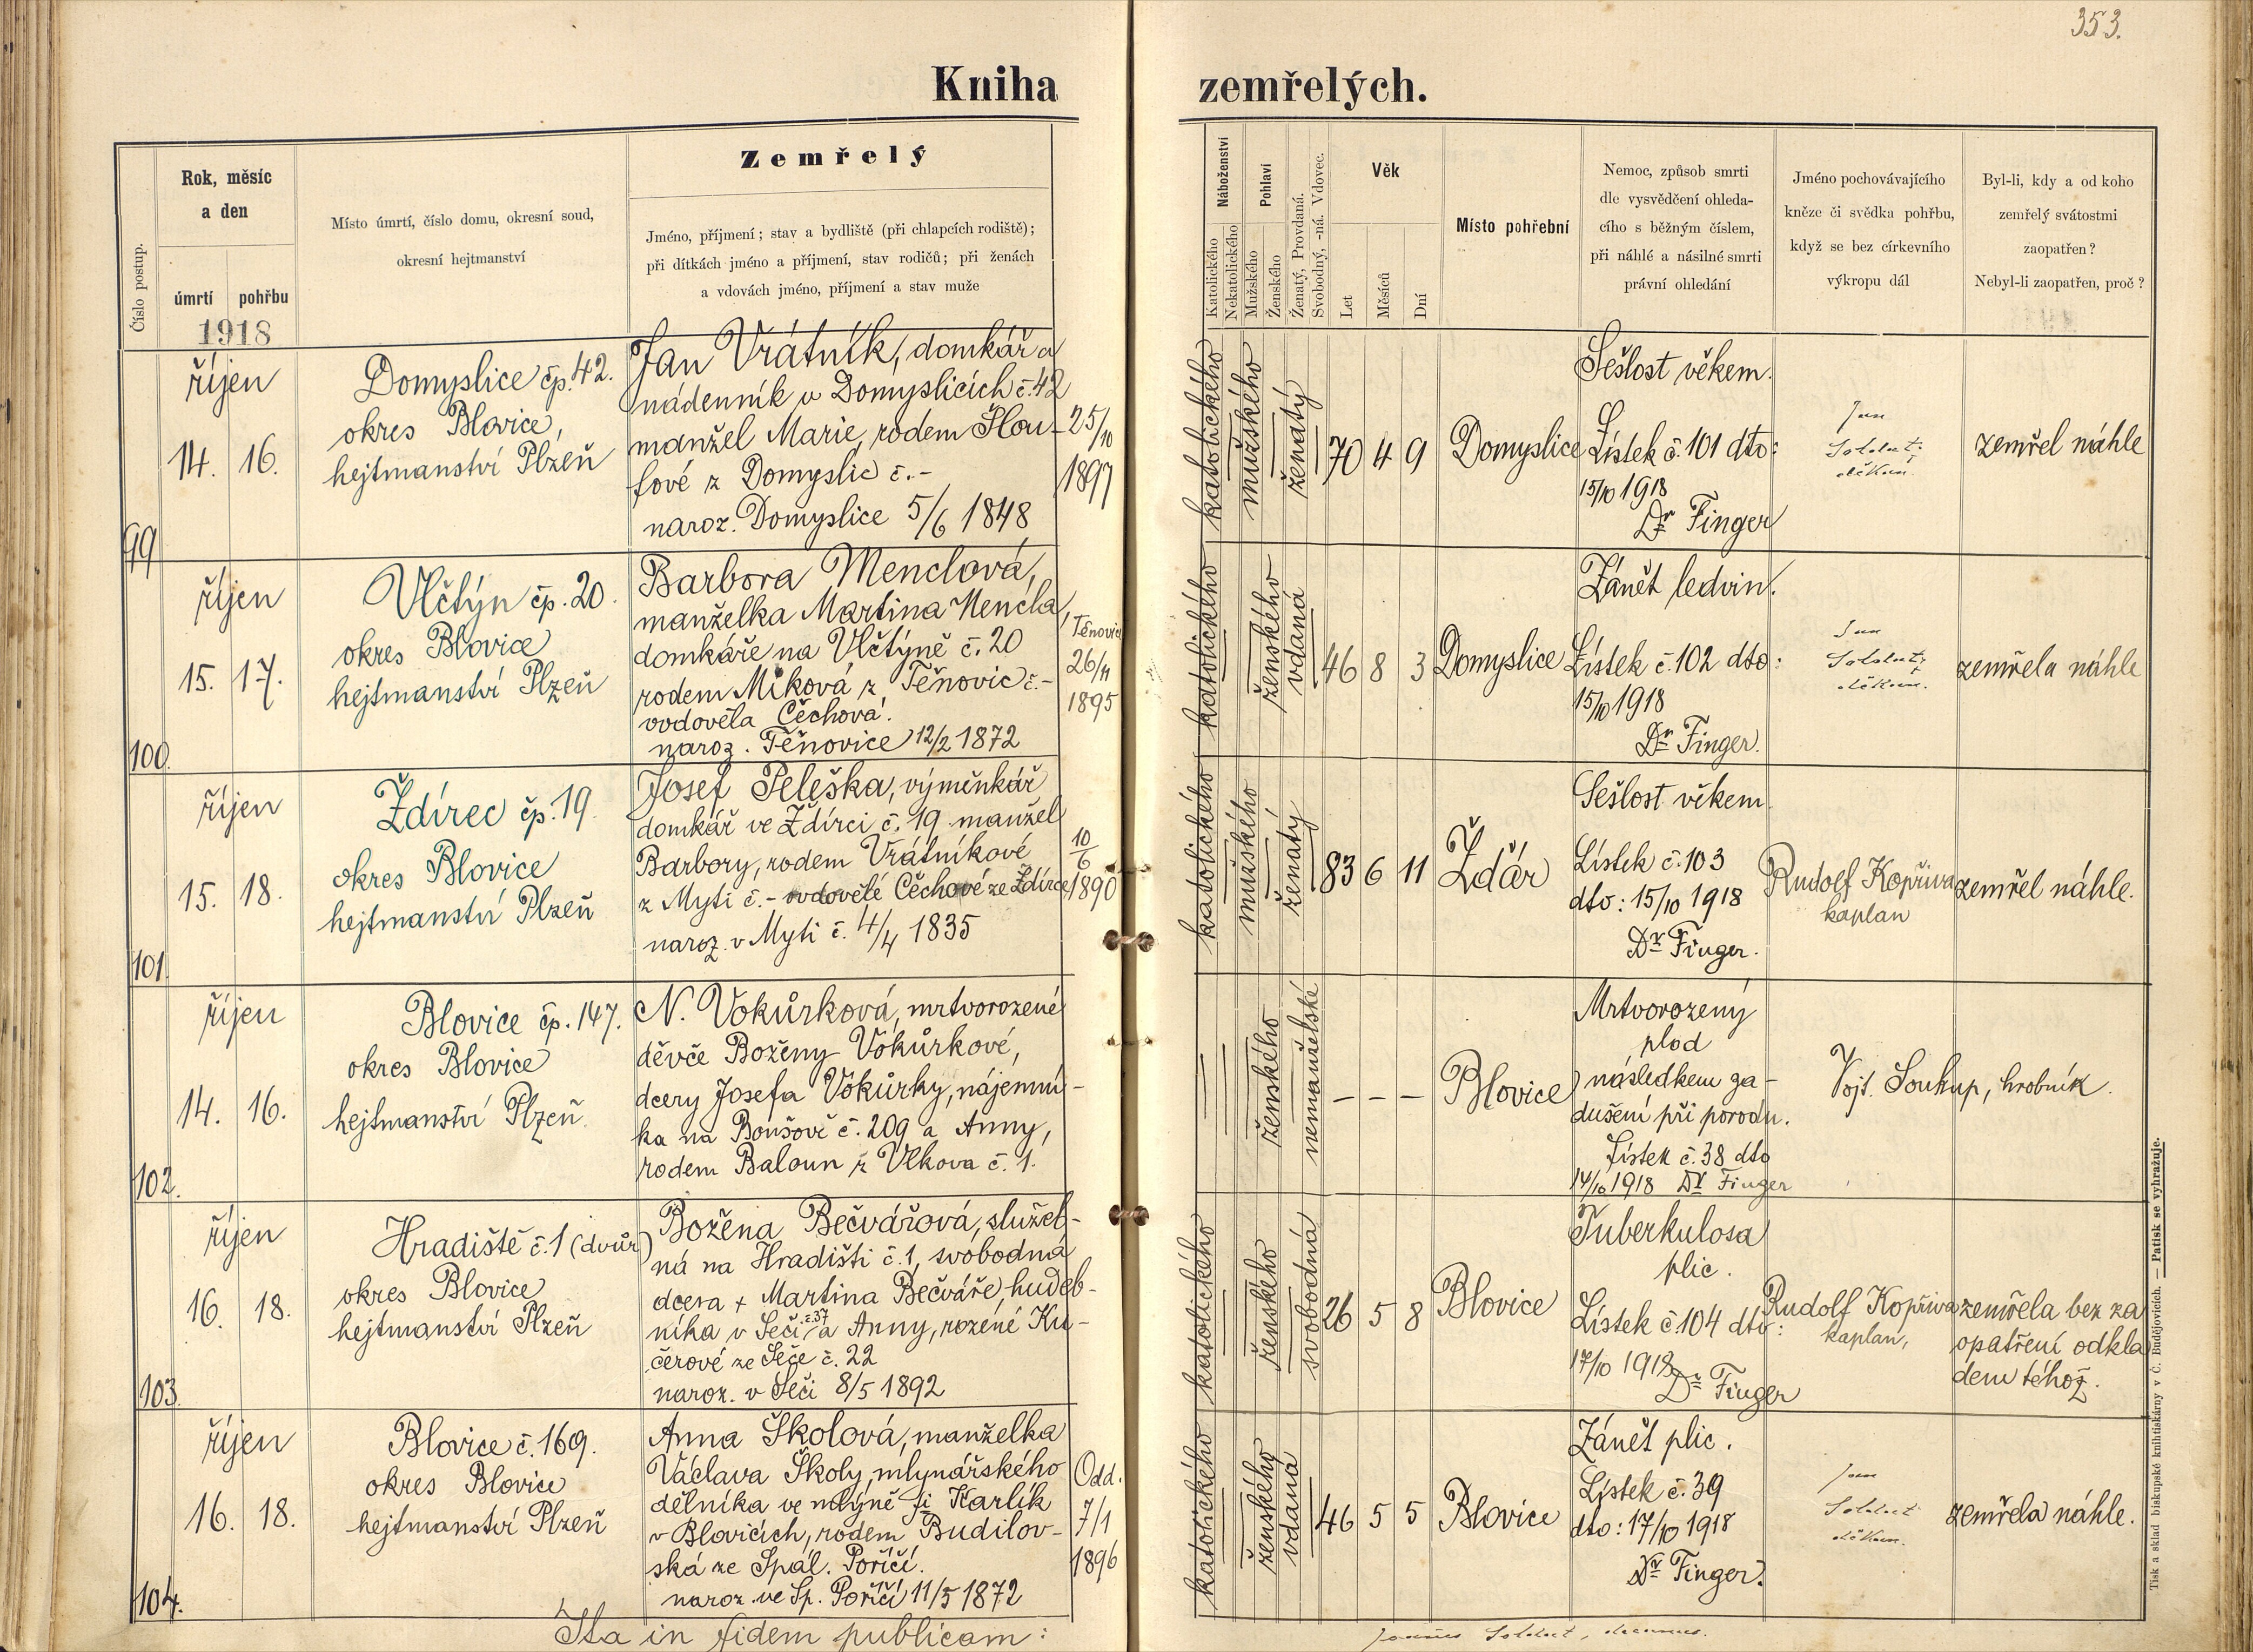 353.
Kniha zemřelých.
Číslo postup.
Rok, měsíc
a den
úmrtí pohřbu
1918
Místo úmrtí, číslo domu, okresní soud,
okresní hejtmanství
Zemřelý
Jméno, příjmení; stav a bydliště (při chlapcích rodiště);
při dítkách jméno a příjmení, stav rodičů; při ženách
a vdovách jméno, příjmení a stav muže
Náboženství
Katolického
Nekatolického
Pohlaví
Mužského
Ženského
Ženatý, Provdaná.
Svobodný, -ná. Vdovec.
Věk
Let
Měsíců
Dní
Místo pohřební
Nemoc, způsob smrti
dle vysvědčení ohleda-
cího s běžným číslem,
při náhlé a násilné smrti
právní ohledání
Jméno pochovávajícího
kněze či svědka pohřbu,
když se bez církevního
výkropu dál
Byl-li, kdy a od koho
zemřelý svátostmi
zaopatřen?
Nebyl-li zaopatřen, proč?
99
říjen
14. 16.
Domyslice čp. 42.
okres Blovice,
hejtmanství Plzeň
Jan Vrátník, domkář a
nádenník v Domyslicích č. 42
manžel Marie, rodem Slou-
fové z Domyslic č. -
naroz. Domyslice 5/6 1848
25/10
1897
katolického
mužského
ženatý
70 4 9
Domyslice
Sešlost věkem.
Lístek č. 101 dto:
15/10 1918
Dr Finger
Jan
Soldát:
děkan.
zemřel náhle
100.
říjen
15. 17.
Vlčtýn čp. 20.
okres Blovice
hejtmanství Plzeň
Barbora Menclová,
manželka Martina Mencla,
domkáře na Vlčtýně č. 20
rodem Míková z Těnovic č. -
ovdověla Čěchová.
naroz. Těňovice 12/2 1872
Těnovice
26/11
1895
katolického
ženského
vdaná
46 8 3
Domyslice
Zánět ledvin.
Lístek č. 102 dto:
15/10 1918
Dr Finger.
Jan
Soldát:
děkan.
zemřela náhle
101.
říjen
15. 18.
Ždírec čp. 19.
okres Blovice
hejtmanství Plzeň
Josef Peleška, výměnkář
domkář ve Ždírci č. 19 manžel
Barbory, rodem Vrátníkové
z Mýti č. - ovdovělé Čěchové ze Ždírce
naroz. v Mýti č. 4/4 1835
10/6
1890
katolického
mužského
ženatý
83 6 11
Žďár
Sešlost věkem
Lístek č. 103
dto: 15/10 1918
Dr Finger.
Rudolf Kopřiva
kaplan
zemřel náhle.
102.
říjen
14. 16.
Blovice čp. 147.
okres Blovice
hejtmanství Plzeň.
N. Vokůrková, mrtvorozené
děvče Boženy Vokůrkové,
dcery Josefa Vokůrky, nájemní-
ka na Boušově č. 209 a Anny,
rodem Baloun z Vlkova č. 1.
ženského
nemanželské
- - -
Blovice
Mrtvorozený
plod
následkem za-
dušení při porodu.
Lístek č. 38 dto
14/10 1918 Dr Finger
Vojt. Soukup, hrobník.
103.
říjen
16. 18.
Hradiště č. 1 (dvůr)
okres Blovice
hejtmanství Plzeň
Božena Bečvářová, služeb-
ná na Hradišti č. 1, svobodná
dcera + Martina Bečváře, hudeb-
níka v Seči č. 37 a Anny, rozené Ku-
čerové ze Seče č. 22
naroz. v Seči 8/5 1892
katolického
ženského
svobodná
26 5 8
Blovice
Tuberkulosa
plic.
Lístek č. 104 dto:
17/10 1918
Dr Finger
Rudolf Kopřiva
kaplan,
zemřela bez za
opatření odkla
dem téhož.
104.
říjen
16. 18.
Blovice č. 169.
okres Blovice
hejtmanství Plzeň
Anna Školová, manželka
Václava Školy, mlynářského
dělníka ve mlýně fi Karlík
v Blovicích, rodem Budilov-
ská ze Spál. Poříčí.
naroz. ve Sp. Poříčí 11/5 1872
Odd.
7/1
1896
katolického
ženského
vdaná
46 5 5
Blovice
Zánět plic.
Lístek č. 39
dto: 17/10 1918
Dr Finger.
Jan
Soldát
děkan.
zemřela náhle.
Ita in fidem publicam:
Joannes Soldát, decanus.
Tisk a sklad biskupské knihtiskárny v Č. Budějovicích. — Patisk se vyhražuje.